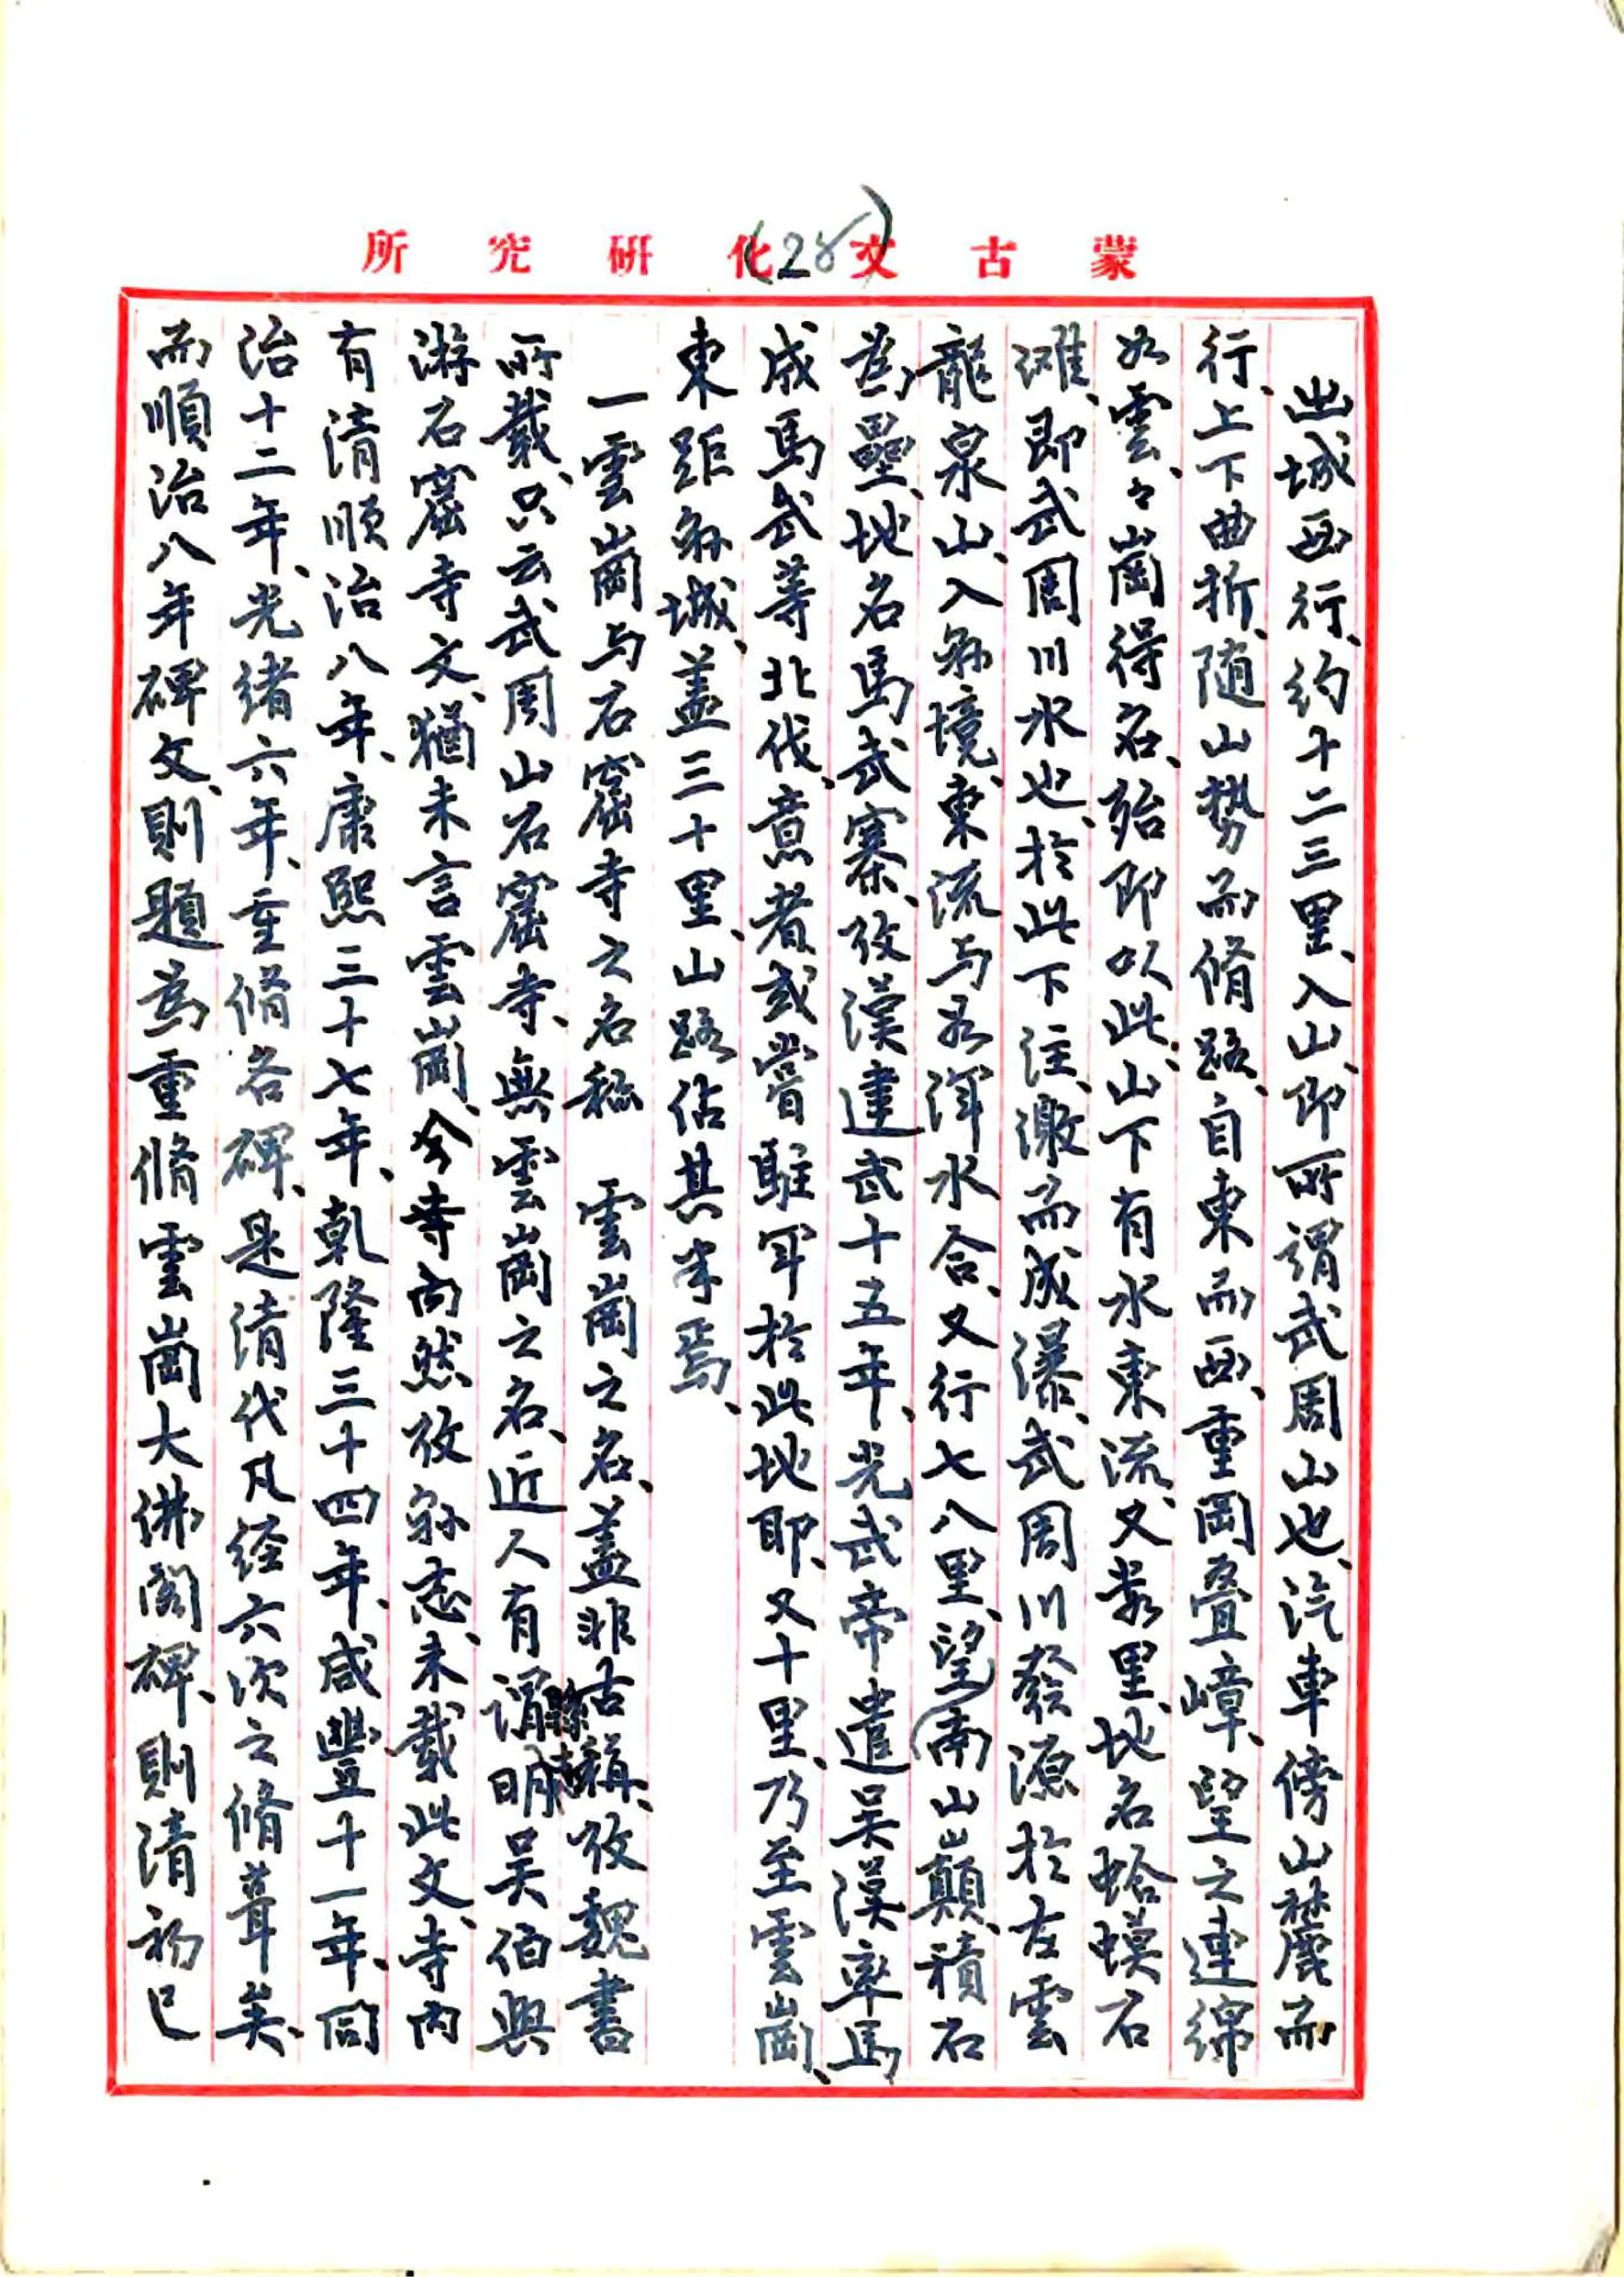 蒙古文化研究所
(28)
出城西行、約十二三里、入山、即所謂武周山也、汽車傍山麓而
行、上下曲折、随山势而脩路、自東而西、重岡叠嶂、望之連綿
如雲、々崗得名、殆即以此、山下有水東流、又数里、地名蛤蟆石
灘、即武周川水也、於此下注、激而成瀑、武周川發源於左雲
龍泉山、入縣境、東流与如渾水合、又行七八里、望南山巔、積石
為壘、地名馬武寨、攷漢建武十五年、光武帝遣吴漢率馬
成馬武等北伐、意者或嘗駐军於此地耶、又十里、乃至雲崗、
東距縣城、盖三十里、山路佔其半焉、
一雲崗与石窟寺之名称　雲崗之名、盖非古稱、攷魏書
所載、只云武周山石窟寺、無雲崗之名、近人有谓明吴伯與
游石窟寺文、猶未言雲崗、今寺尚然攷縣志、未載此文、寺内
有清順治八年、康熙三十七年、乾隆三十四年、咸豐十一年、同
治十二年、光绪六年、重脩各碑、是清代凡经六次之脩葺矣、
而順治八年碑文、則題為重脩雲崗大佛阁碑、則清初已